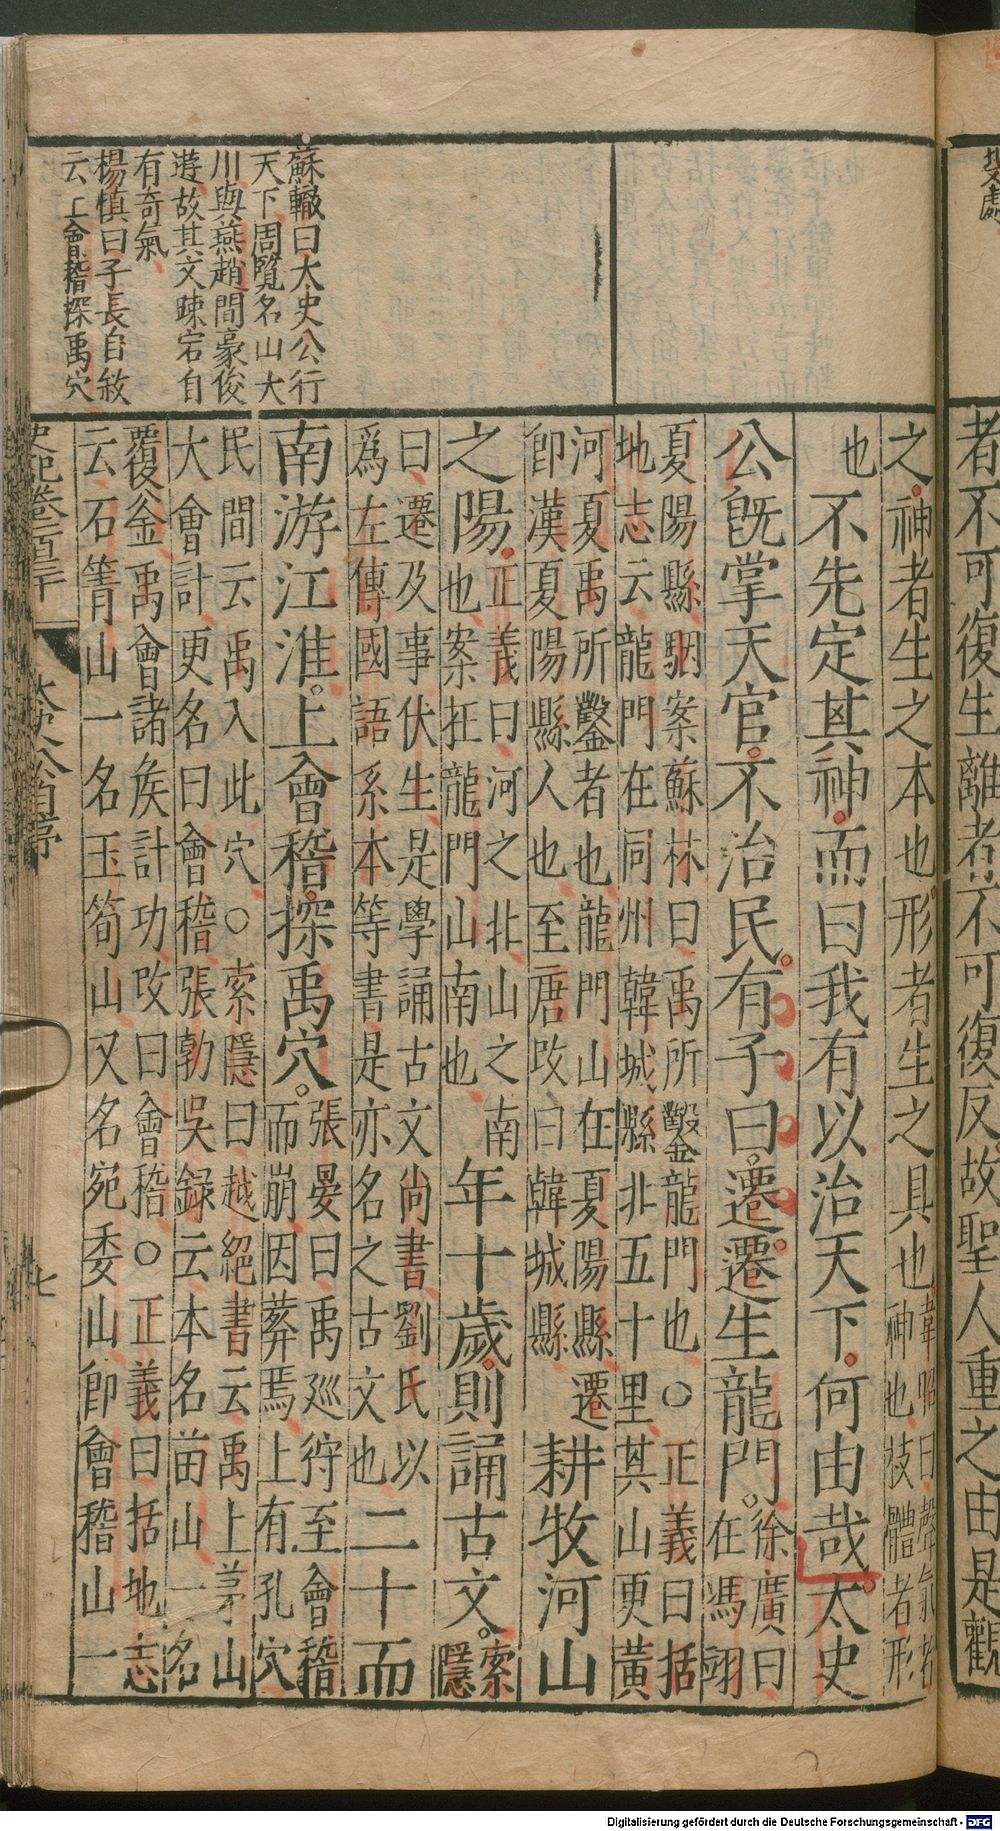 者不可復生離者不可復反故聖人重之由是觀
蘇轍曰太史公行
天下周覽名山大
川與燕趙間豪俊
遊故其文踈宕自
有奇氣
楊慎曰子長自敘
云上會稽探禹穴
之神者生之本也形者生之具也韋昭曰聲氣者
神也枝體者形
也不先定其神而曰我有以治天下何由哉太史
公既掌天官不治民有子曰遷遷生龍門徐廣曰
在馮翊
夏陽縣駰案蘇林曰禹所鑿龍門也○正義曰括
地志云龍門在同州韓城縣北五十里其山更黃
河夏禹所鑿者也龍門山在夏陽縣遷
即漢夏陽縣人也至唐改曰韓城縣
耕牧河山
之陽正義曰河之北山之南
也案在龍門山南也
年十歲則誦古文索
隱
曰遷及事伏生是學誦古文尚書劉氏以
爲左傳國語系本等書是亦名之古文也
二十而
南游江淮上會稽探禹穴張晏曰禹廵狩至會稽
而崩因葬焉上有孔穴
民間云禹入此穴○索隱曰越絕書云禹上茅山
大會計更名曰會稽張勃吳録云本名苗山一名
覆釡禹會諸侯計功改曰會稽○正義曰括地志
云石箐山一名玉笥山又名宛委山即會稽山一
史記卷一百三十 太史公自序 七
Digitalisierung gefördert durch die Deutsche Forschungsgemeinschaft - DFG